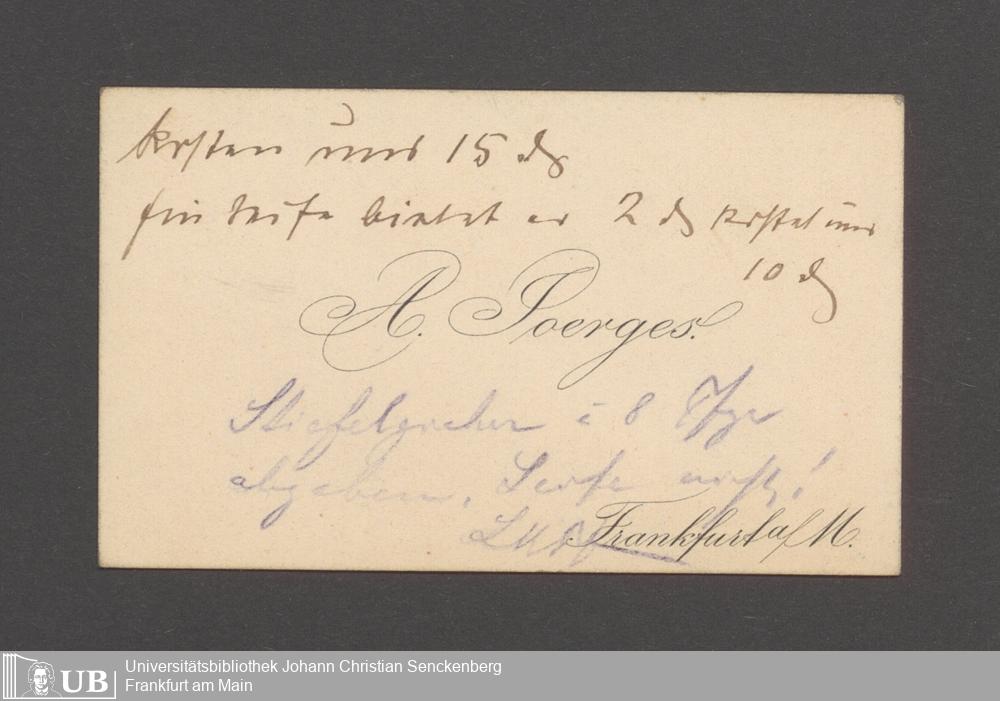 kosten uns 15 ₰
für Seife bietet er 2 ₰ kostet uns
10 ₰
A. Joerges.
Stiefelzieher à 8
abgeben. Seife nicht!
Frankfurt a/M.
UB
Universitätsbibliothek Johann Christian Senckenberg
Frankfurt am Main